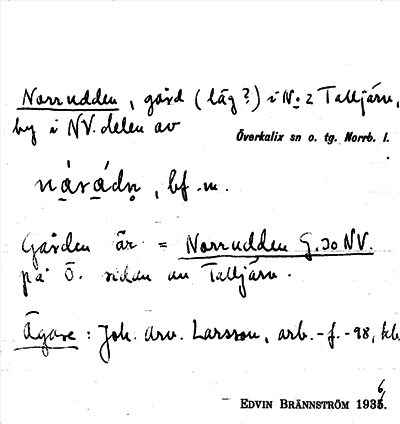 Norrudden, gård (läg?) i N:o 2 Talljärv,
by i NV. delen av
Överkalix sn o. tg. Norrb. l.
, bf. m.
Gården är = Norrudden G.30 NV.
på Ö. sidan av Talljärv.
Ägare: Joh. Arv. Larsson, arb. -f. -98, kb
EDVIN BRÄNNSTRÖM 1936